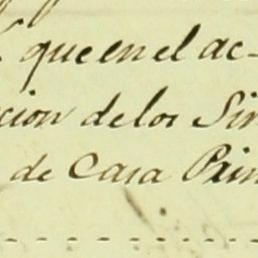 que en el ac-
cion de los Sir
de Casa Prin